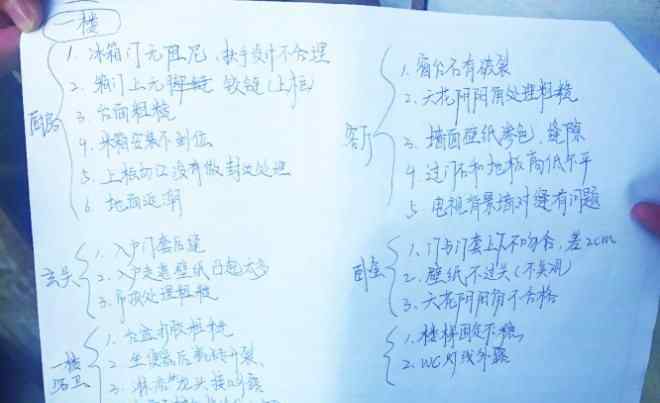 一楼
厨房
1. 冰箱门无阻尼、扶手设计不合理
2. 箱门上无 铰链(上柜)
3. 台面粗糙
4. 米箱安装不到位
5. 上柜切口没有做封边处理
6. 地面返潮
玄关
1. 入户门套后缝
2. 入户走道壁纸凸起太多
3. 吊顶处理粗糙
一楼
卫
1. 台盆打胶粗糙
2. 坐便器后 开裂、
3. 淋浴 龙头接口外露
客厅
1. 窗台石有破裂
2. 六花阴阳角处理粗糙
3. 墙面壁纸参色、缝隙
4. 过门石和地板高低不平
5. 电视背景墙对缝有问题
卧室
1. 门与门套上下不吻合,差2cm
2. 壁纸不过关(不美观)
3. 六花阴阳角不合格
1. 楼梯固定不稳,
2. WC 线外露